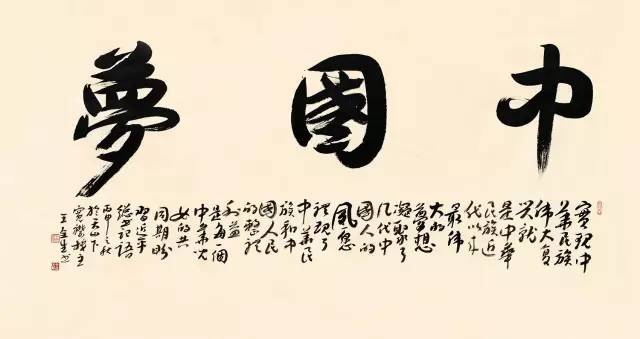 中國夢
實現中
華民族
偉大復
興就
是中華
民族近
代以来
最偉
大的
夢想
凝聚了
几代中
國人的
夙愿
體現了
中華民
族和中
國人民
的整體
利益
是每一個
中華兒
女的共
同期盼
習近平
總書記語
丙申之秋
於天山下
主
王生書